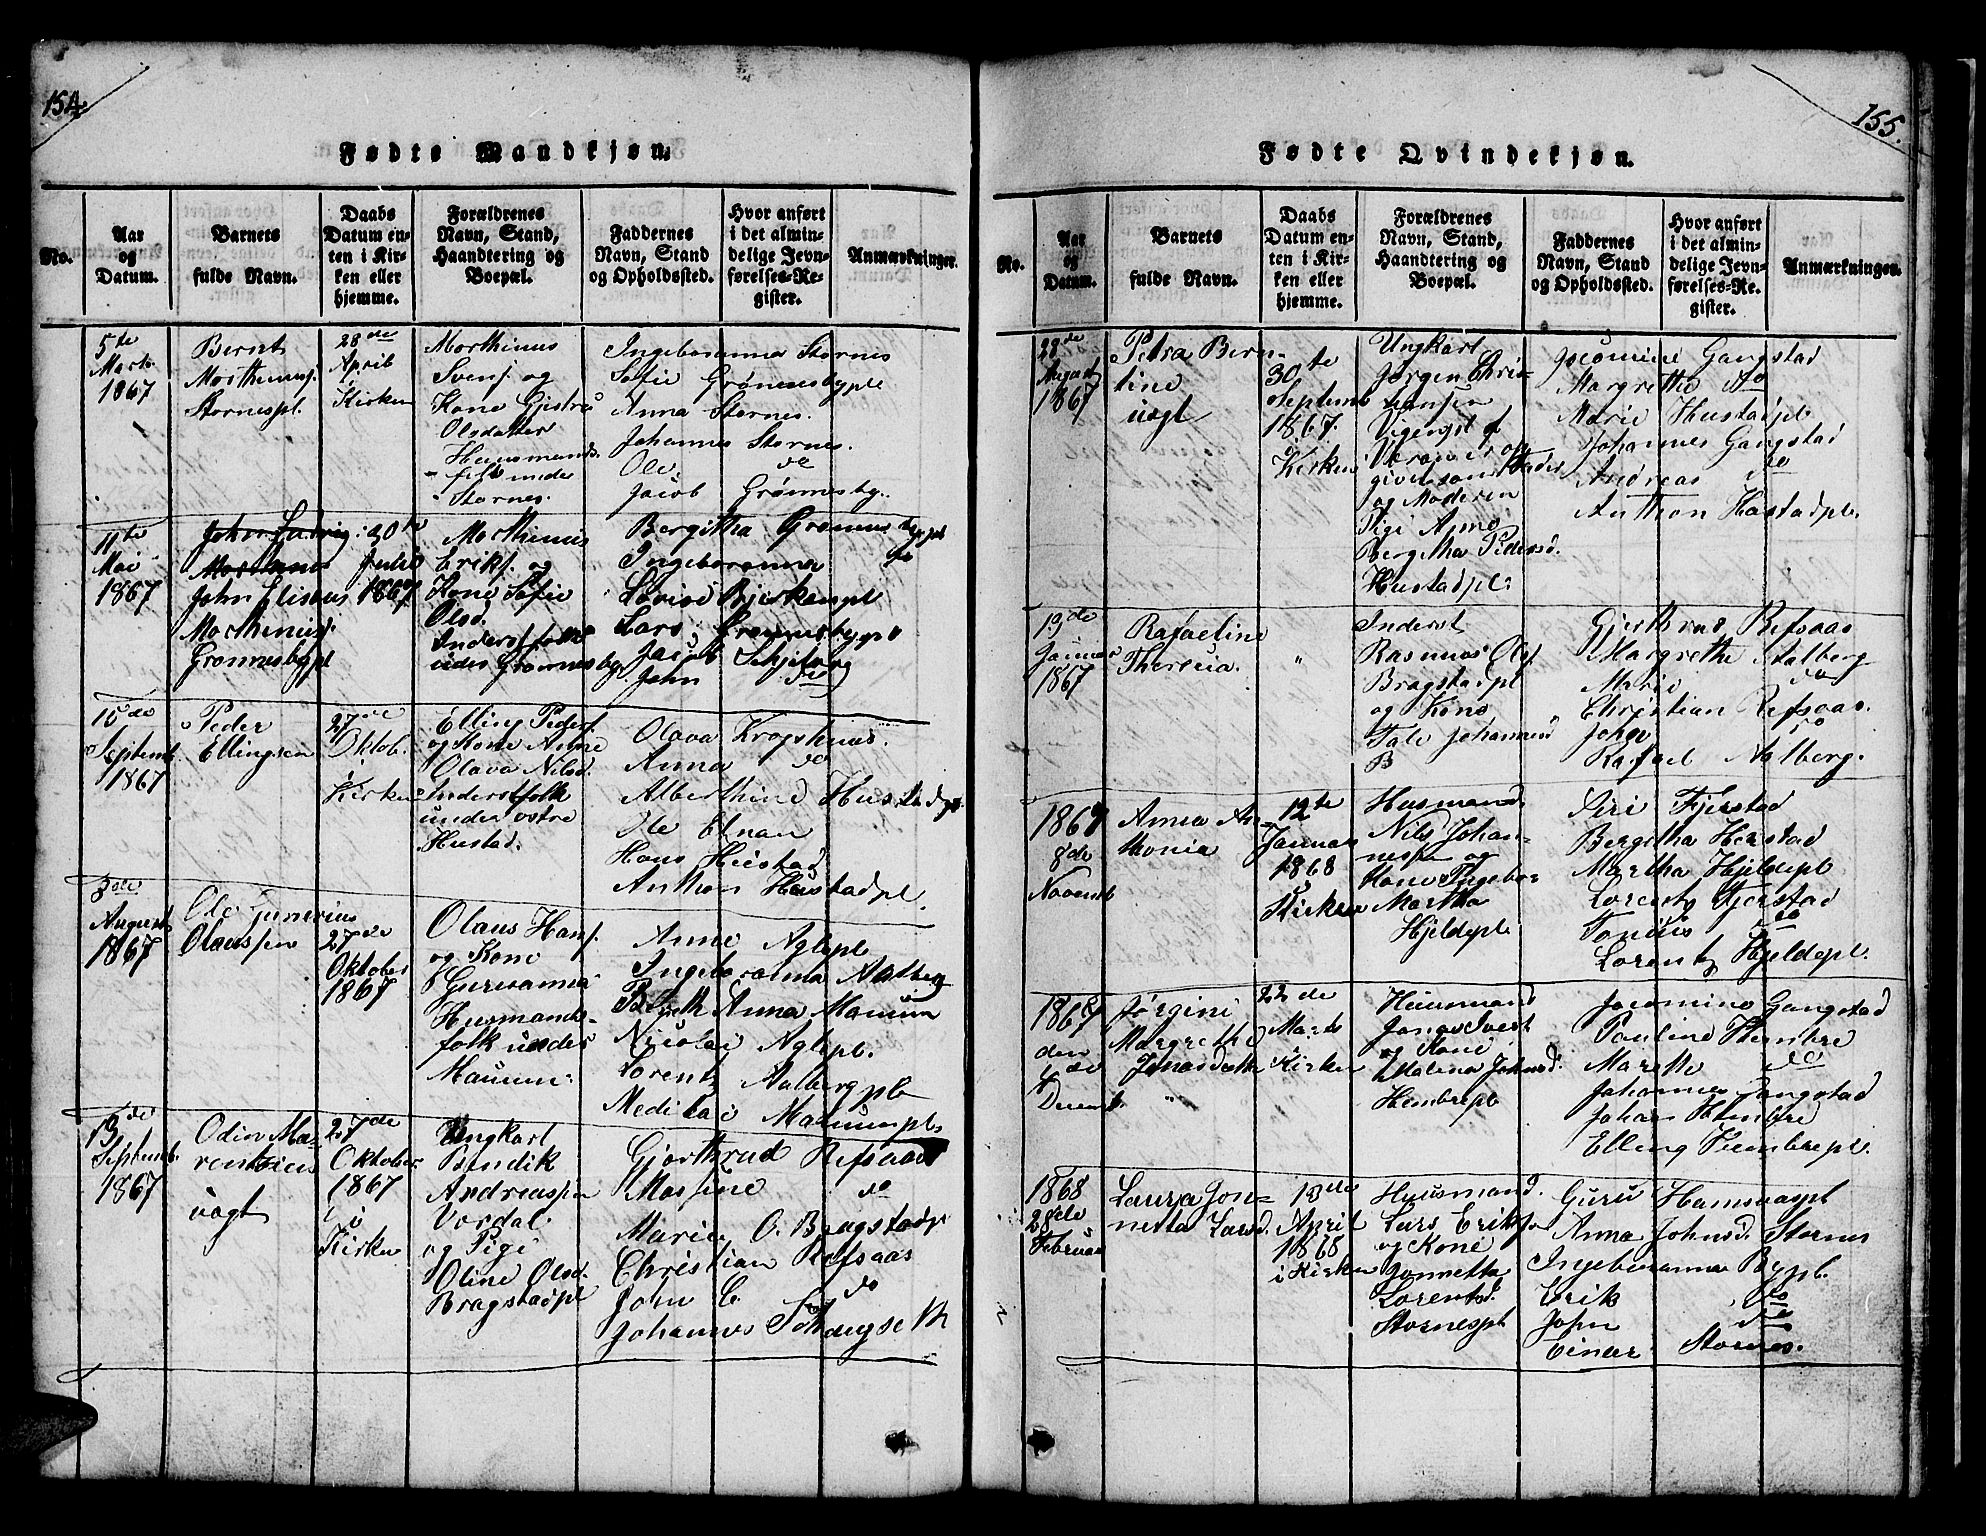 154.
Fødte Mandkjøn.
No.
Aar
og
Datum.
Barnets
fulde Navn.
Daabs
Datum en-
ten i Kir-
ken eller
hjemme.
Forældrenes
Navn, Stand,
Haandtering og
Boepæl.
Faddernes
Navn, Stand
og Opholdssted.
Hvor anført
i det almin-
delige Jevn-
førelses-Re-
gister.
Anmærkninger.
5te
Marts
1867
Bernt
Morthinusf.
Stornespl.
28de
April
Kirken
Morthinus
Svensf. og
Kone Gjestru
Olsdatter
Huusmands-
folk under
Stornes.
Ingeboranna Stornes
Sofie Grønnesbypl
Anna Stornes.
Johannes Stornes.
Ole do
Jacob Grønnesby.
11te
Mai
1867
John Ludvig
Morthinus
John Elisæus
Morthinusf.
Grønnesbypl
30te
Juli
1867
Morthinus
Erikf. og
Kone Sofie
Olsd.
Inderstfolk
under Grønnesby.
Bergitha Grønnesbypl
Ingeboranna do
Lovise Bjerkempl
Lars Grønnesbypl
Jacob
John do
15de
Septemb.
1867
Peder
Ellingsen
27de
Oktob.
i
Kirken
Elling Pedersf.
og Kone Anne
Olava Nilsd.
Inderstfolk
under østre
Hustad.
Olava Krogshuus.
Anna do
Alberthine Hustadpl.
Ole Elnan
Hans Hustad
Anthon Hustadpl.
3die
August
1867
Ole Gunerius
Olaussen
27de
Oktober
1867
Olaus Hansf.
og Kone
Gurianna
Husmands-
folk under
Mauum.
Anne Aglepl.
Ingeboranna Aalberg
Anna Mauum
Nicolai Aglepl.
Lorentz Aalbergpl
Medikai Mauumpl.
13de
Septemb.
1867
Odin Ma-
rentzius
uægt
27de
Oktober
1867
i
Kirken
Ungkarl
Bendik
Andreassen
Vordal
og Pige
Oline Olsd.
Bragstadpl
Gjorthrud Refsaas
Massine do
Marie O. Bragstadpl
Christian Refsaas
John C. do
Johannes
155.
Fødte Qvindekjøn.
No.
Aar
og
Datum.
Barnets
fulde Navn.
Daabs
Datum en-
ten i Kir-
ken eller
hjemme.
Forældrenes
Navn, Stand,
Haandtering og
Boepæl.
Faddernes
Navn, Stand
og Opholdssted.
Hvor anført
i det almin-
delige Jevn-
førelses-Re-
gister.
Anmærkninger.
28de
August
1867
Petra Bern-
tine
uægt
30te
Septemb
1867.
Kirken
Ungkarl
Jørgen Chris-
tiansen
Vigenspl af
Værran er op-
given som Fader
og Moderen
Pige Anne
Bergitha Pedersd.
Hustadpl.
Jacomine Gangstad
Margrethe do
Marie Hustadpl
Johannes Gangstad
Andreas do
Anthon Hustadpl.
13de
Januar
1867
Rafaeline
Theresia.
"
Inderst
Rasmus Olsf.
Bragstadpl
og Kone
Tale Johannesd
B
Gjerthrud Refsaas
Margrethe Aalberg
Marie do
Christian Refsaas.
John do
Rafael Aalberg.
1867
8de
Novemb
Anna An-
thonia
12te
Januar
1868
Kirken
Husmand
Nils Johan-
nessen og
Kone Ingebor
Martha
Hjeldepl.
Siri Fjerstad
Bergitha Herstad
Martha Hjeldepl
Lorentz Fjerstad
Tonius do
Lorentz Hjeldepl.
1867
den
4de
Decemb.
Jørgine
Margrethe
Jonasdatter
22de
Marts
Kirken
Huusmand
Jonas Sivert
og Kone
Malena Johnsd.
Hembrepl
Jacomine Gangstad
Pauline Hembre
Marethe do
Johannes Gangstad
Johan Hembre
Elling Hembrepl.
1868
28de
Februar
Laura Jon-
netta Larsd.
13de
April
1868
i Kirken
Huusmand.
Lars Eriksf.
og Kone
Jonnetta
Lorentsd.
Stornespl
Guru Hamsvaspl
Anna Johnsd. Stornes
Ingeboranna Bypl.
Erik do
John do
Einar Stornes.